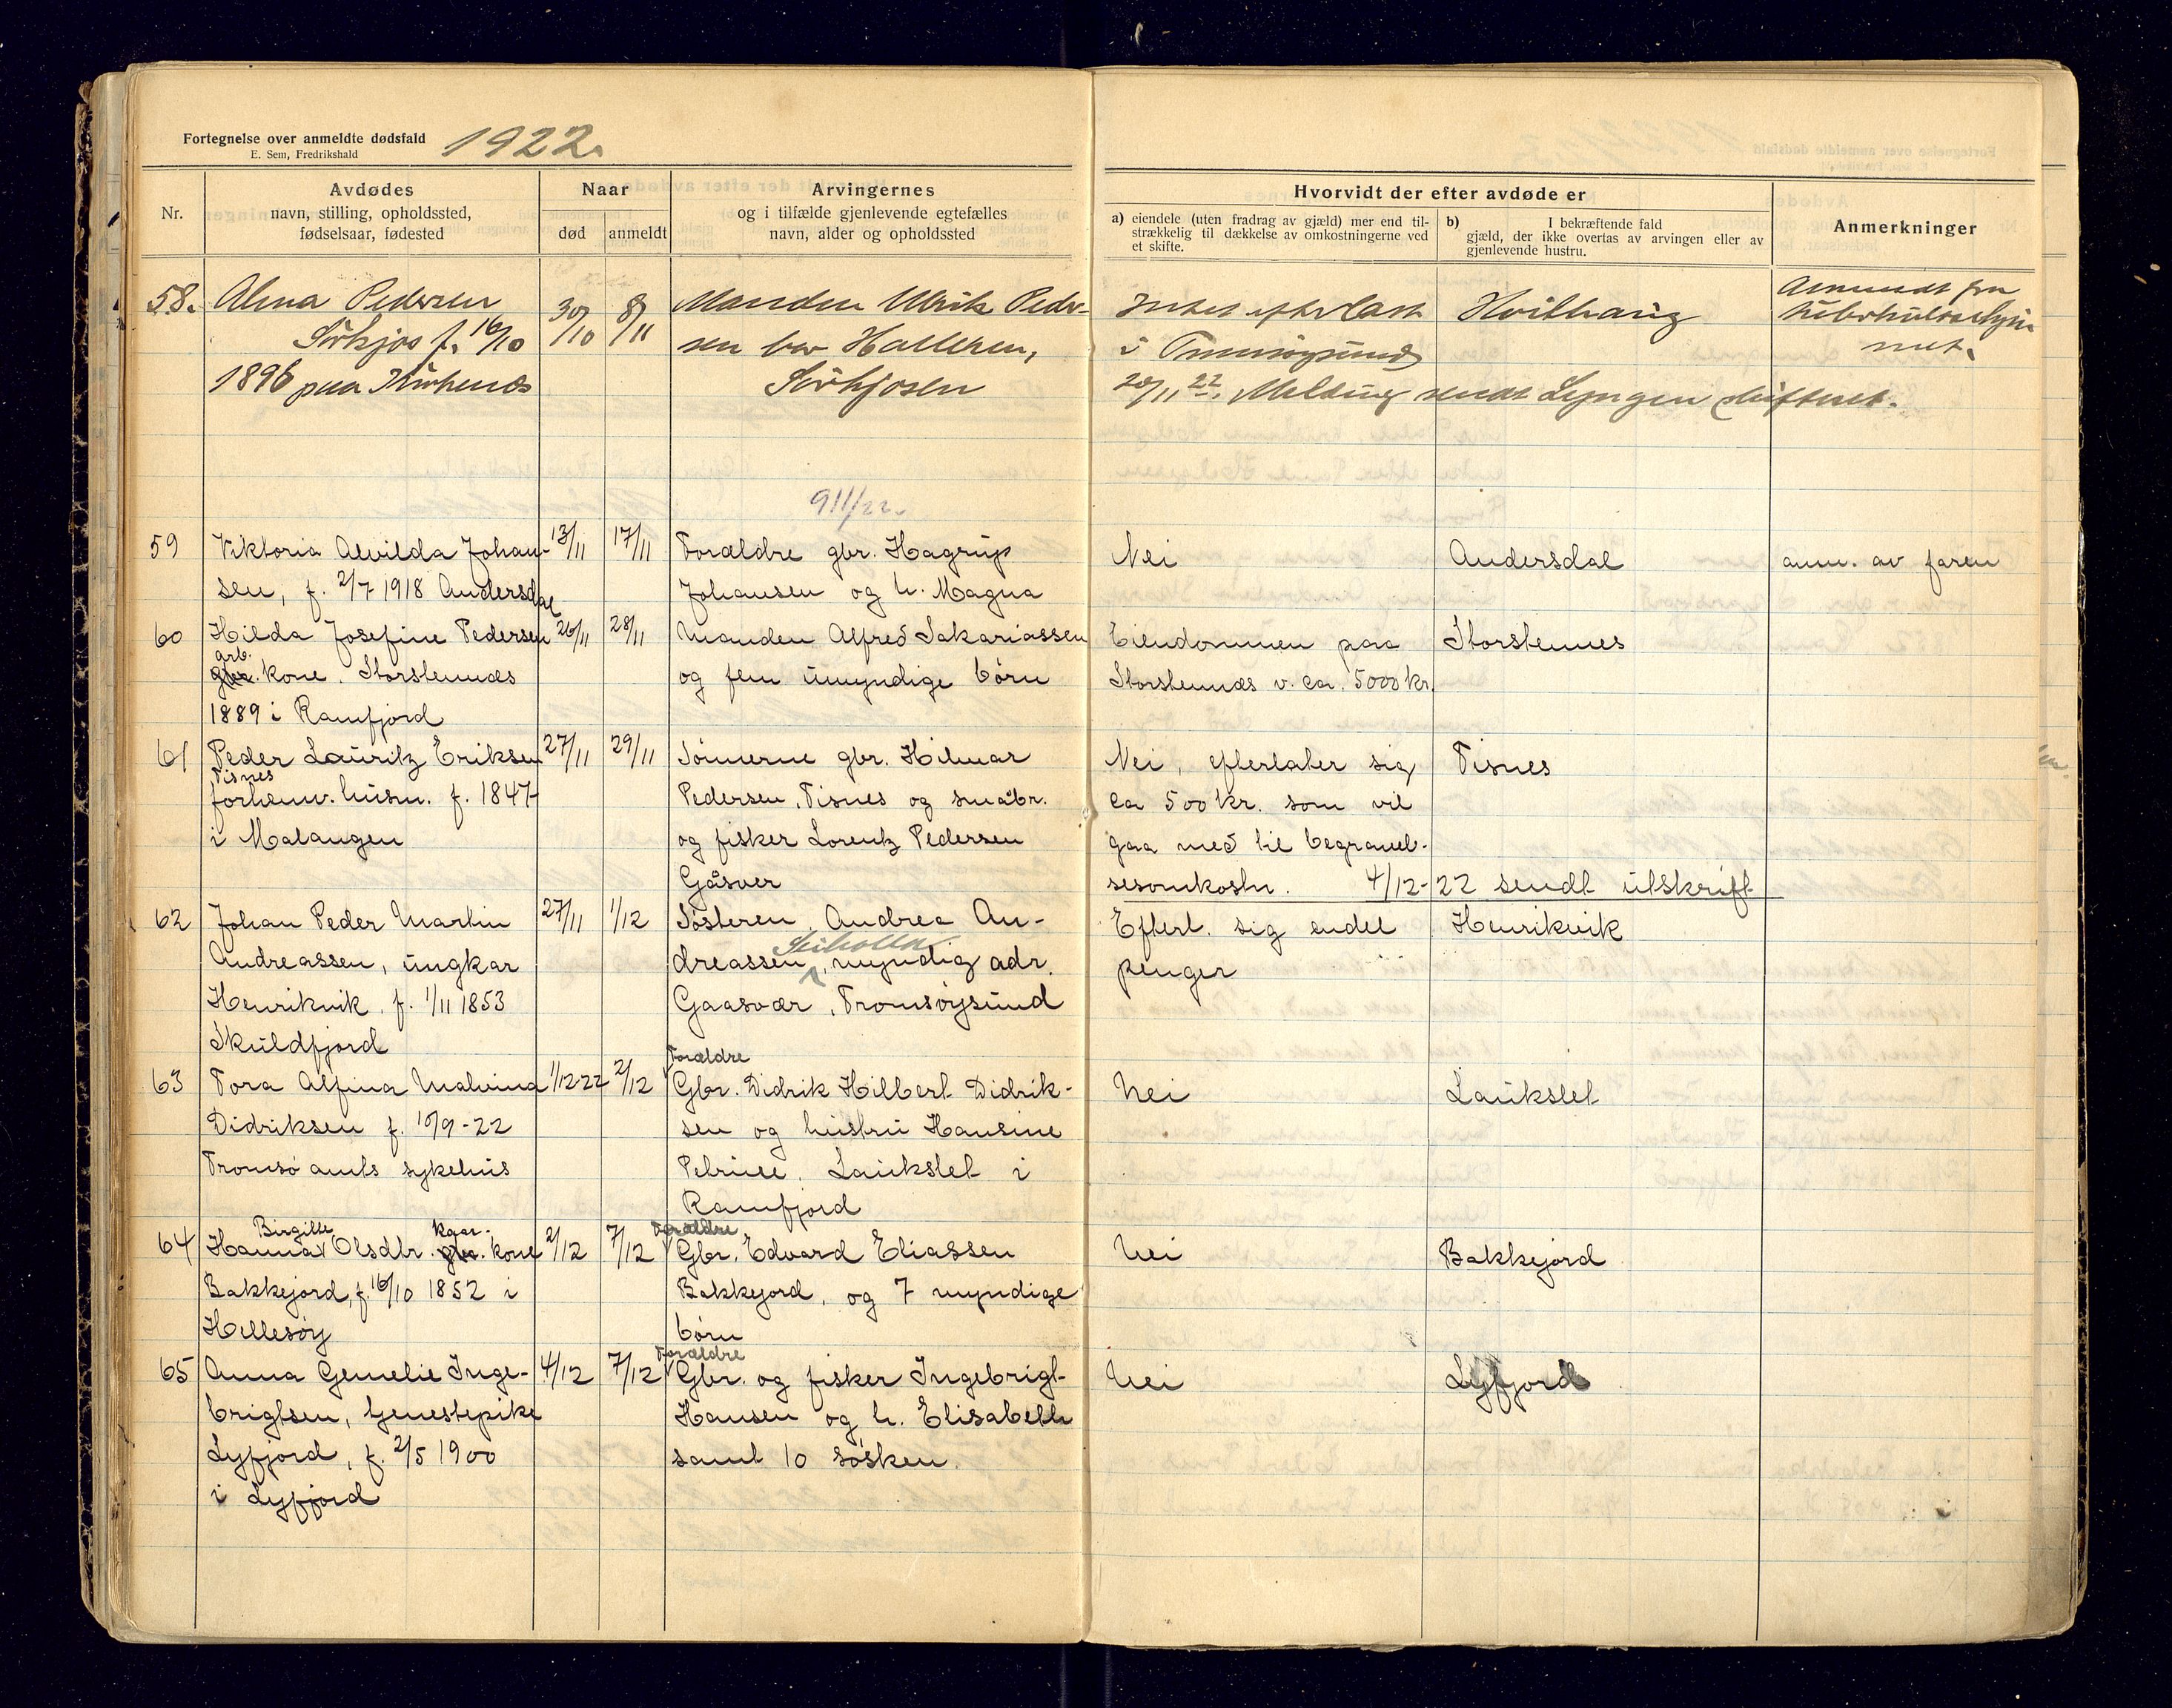 Fortegnelse over anmeldte dødsfald 1922.
E. Sem, Fredrikshald
Nr.
Avdødes
navn, stilling, opholdssted,
fødselsaar, fødested
Naar
død
anmeldt
Arvingernes
og i tilfælde gjenlevende egtefælles
navn, alder og opholdssted
Hvorvidt der efter avdøde er
a) eiendele (uten fradrag av gjæld) mer end til-
strækkelig til dækkelse av omkostningerne ved
et skifte.
b) I bekræftende fald
gjæld, der ikke overtas av arvingen eller av
gjenlevende hustru.
Anmerkninger
58. Alma Pedersen
Sörkjos f. 16/10
1896 paa Kirkenes
30/10
8/11
Manden Ulrik Peder-
sen bor Halleren,
Sörkjosen
Intet efterlatt
i Tromsøysund
20/11 22. Melding sendt Lyngen skifteret.
Anmeldt fra
911/22.
59
Viktoria Alvilda Johan-
sen, f. 2/7 1918 Andersdal
13/11
17/11
Forældre gbr. Hagrup
Johansen og h. Magna
Nei
Andersdal
anm. av faren
60
Hilda Josefine Pedersen
arb.
gbr. kone. Storstennæs
1889 i Ramfjord
26/11
28/11
Manden Alfred Sakariassen
og fem umyndige börn
Eiendommen paa
Storstennæs v. ca. 5000 kr.
Storstennes
61
Peder Lauritz Eriksen
Tisnes
forhenv. husm. f. 1847
i Malangen
27/11
29/11
Sönnerne gbr. Hilmar
Pedersen, Tisnes og småbr.
og fisker Lorentz Pedersen
Gåsver
Nei, efterlater sig
ca 500 kr. som vil
gaa med til begravel-
sesomkostn. 4/12-22 sendt utskrift
Tisnes
62
Johan Peder Martin
Andreassen, ungkar
Henrikvik. f. 1/11 1853
Skuldfjord
27/11
1/12
Søsteren Andrea An-
dreassen, myndig adr.
Gaasvær, Tromsöysund
Efterl. sig endel
penger
Henrikvik
63
Tora Alfina Malvina
Didriksen f. 10/9-22
Tromsö amts sykehus
1/12-22
2/12
Forældre
Gbr. Didrik Hilbert Didrik-
sen og hustru Hansine
Petrine. Laukslet i
Ramfjord
Nei
Laukslet
64
Birgitte
kaar-
Hanna Olsdtr. gbr. kone
Bakkejord, f. 16/10 1852 i
Hillesöy
2/12
7/12
Forældre
Gbr. Edvard Eliassen
Bakkejord, og 7 myndige
börn
Nei
Bakkejord
65
Anna Gemelie Inge-
brigtsen, tjenestepike
Lyfjord, f. 2/5 1900
i Lyfjord
4/12
7/12
Forældre
Gbr. og fisker Ingebrigt
Hansen og h. Elisabeth
samt 10 søsken.
Nei
Lyfjord